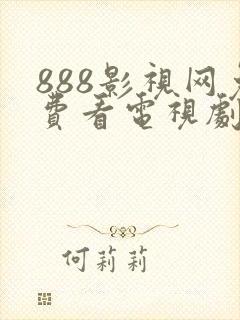 888影視网免
費看電視劇
何莉莉